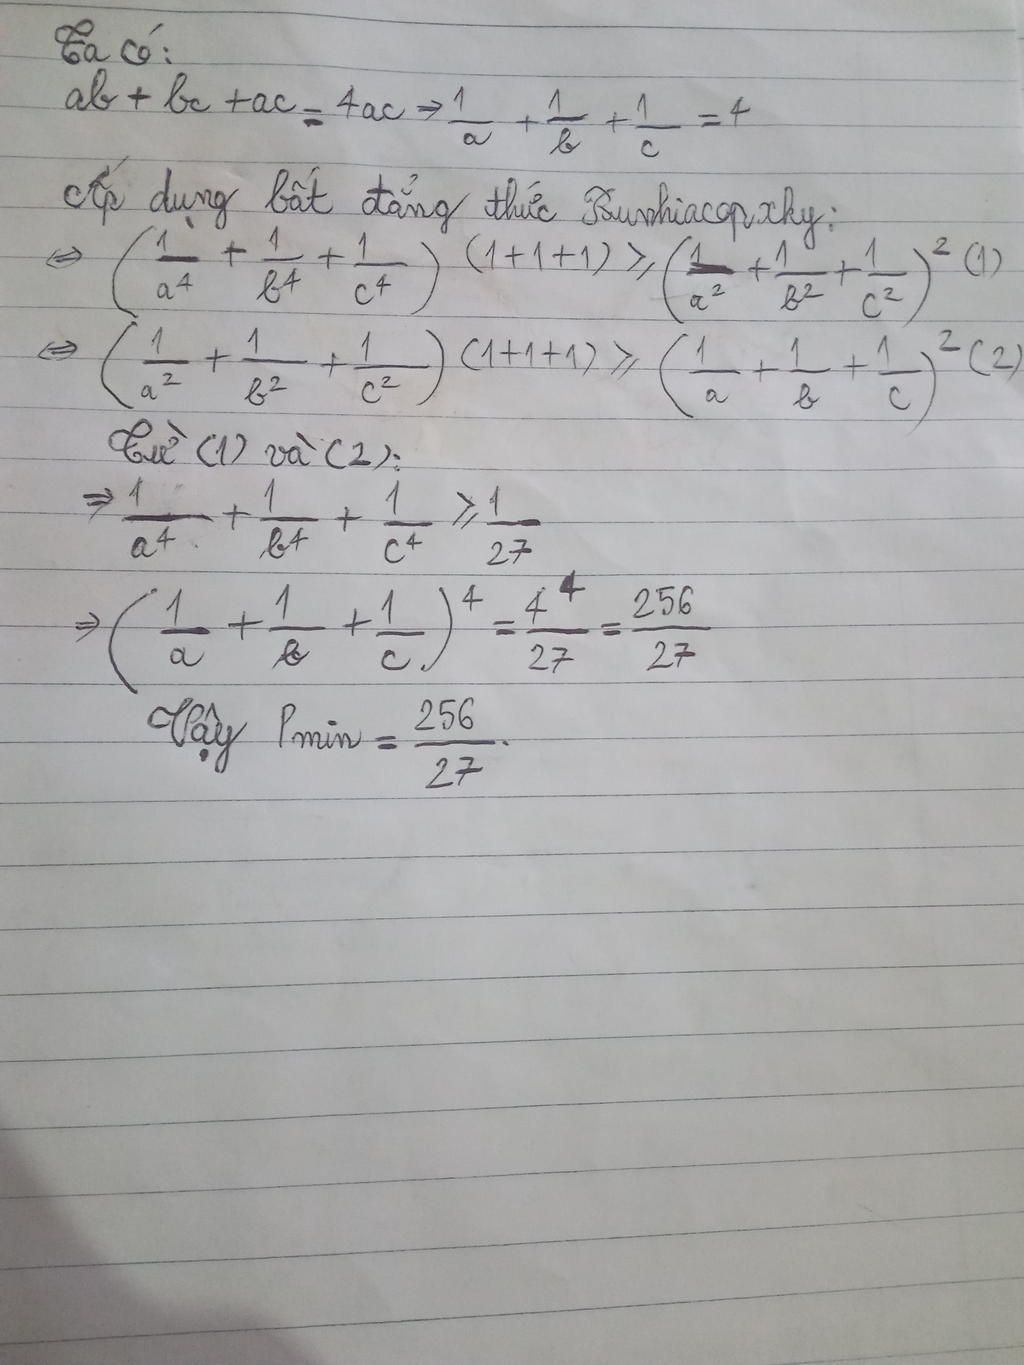 Ta có:
ab + bc + ac = 4ac ⇒ 1/a + 1/b + 1/c = 4
Áp dụng bất đẳng thức Bunhiacopxky:
⇔ (1/a⁴ + 1/b⁴ + 1/c⁴) (1+1+1) ≥ (1/a² + 1/b² + 1/c²)² (1)
⇔ (1/a² + 1/b² + 1/c²) (1+1+1) ≥ (1/a + 1/b + 1/c)² (2)
Từ (1) và (2):
⇒ 1/a⁴ + 1/b⁴ + 1/c⁴ ≥ 1/27
⇒ (1/a + 1/b + 1/c)⁴ = 4⁴/27 = 256/27
Vậy Pmin = 256/27.